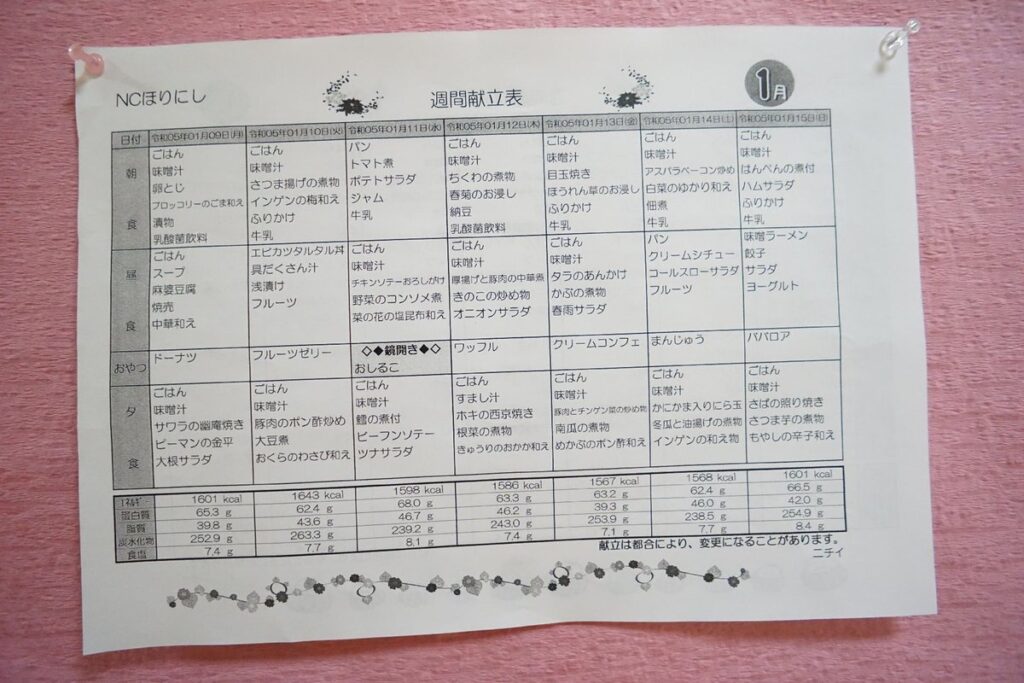 NCほりにし
週間献立表
1月
日付 令和05年01月09日(月) 令和05年01月10日(火) 令和05年01月11日(水) 令和05年01月12日(木) 令和05年01月13日(金) 令和05年01月14日(土) 令和05年01月15日(日)
朝食
ごはん
味噌汁
卵とじ
ブロッコリーのごま和え
漬物
乳酸菌飲料
ごはん
味噌汁
さつま揚げの煮物
インゲンの梅和え
ふりかけ
牛乳
パン
トマト煮
ポテトサラダ
ジャム
牛乳
ごはん
味噌汁
ちくわの煮物
春菊のお浸し
納豆
乳酸菌飲料
ごはん
味噌汁
目玉焼き
ほうれん草のお浸し
ふりかけ
牛乳
ごはん
味噌汁
アスパラベーコン炒め
白菜のゆかり和え
佃煮
牛乳
ごはん
味噌汁
はんぺんの煮付
ハムサラダ
ふりかけ
牛乳
昼食
ごはん
スープ
麻婆豆腐
焼売
中華和え
エビカツタルタル丼
具だくさん汁
浅漬け
フルーツ
ごはん
味噌汁
チキンソテーおろしがけ
野菜のコンソメ煮
菜の花の塩昆布和え
ごはん
味噌汁
厚揚げと豚肉の中華煮
きのこの炒め物
オニオンサラダ
ごはん
味噌汁
タラのあんかけ
かぶの煮物
春雨サラダ
パン
クリームシチュー
コールスローサラダ
フルーツ
味噌ラーメン
餃子
サラダ
ヨーグルト
おやつ
ドーナツ
フルーツゼリー
◇◆鏡開き◆◇
おしるこ
ワッフル
クリームコンフェ
まんじゅう
ババロア
夕食
ごはん
味噌汁
サワラの幽庵焼き
ピーマンの金平
大根サラダ
ごはん
味噌汁
豚肉のポン酢炒め
大豆煮
おくらのわさび和え
ごはん
味噌汁
鱈の煮付
ビーフンソテー
ツナサラダ
ごはん
すまし汁
ホキの西京焼き
根菜の煮物
きゅうりのおかか和え
ごはん
味噌汁
豚肉とチンゲン菜の炒め物
南瓜の煮物
めかぶのポン酢和え
ごはん
味噌汁
かにかま入りにら玉
冬瓜と油揚げの煮物
インゲンの和え物
ごはん
味噌汁
さばの照り焼き
さつま芋の煮物
もやしの辛子和え
エネルギー 1601 kcal 1643 kcal 1598 kcal 1586 kcal 1567 kcal 1568 kcal 1601 kcal
蛋白質 65.3 g 62.4 g 68.0 g 63.3 g 63.2 g 62.4 g 66.5 g
脂質 39.8 g 43.6 g 46.7 g 46.2 g 39.3 g 46.0 g 42.0 g
炭水化物 252.9 g 263.3 g 239.2 g 243.0 g 253.9 g 238.5 g 254.9 g
食塩 7.4 g 7.7 g 8.1 g 7.4 g 7.1 g 7.7 g 8.4 g
献立は都合により、変更になることがあります。
ニチイ